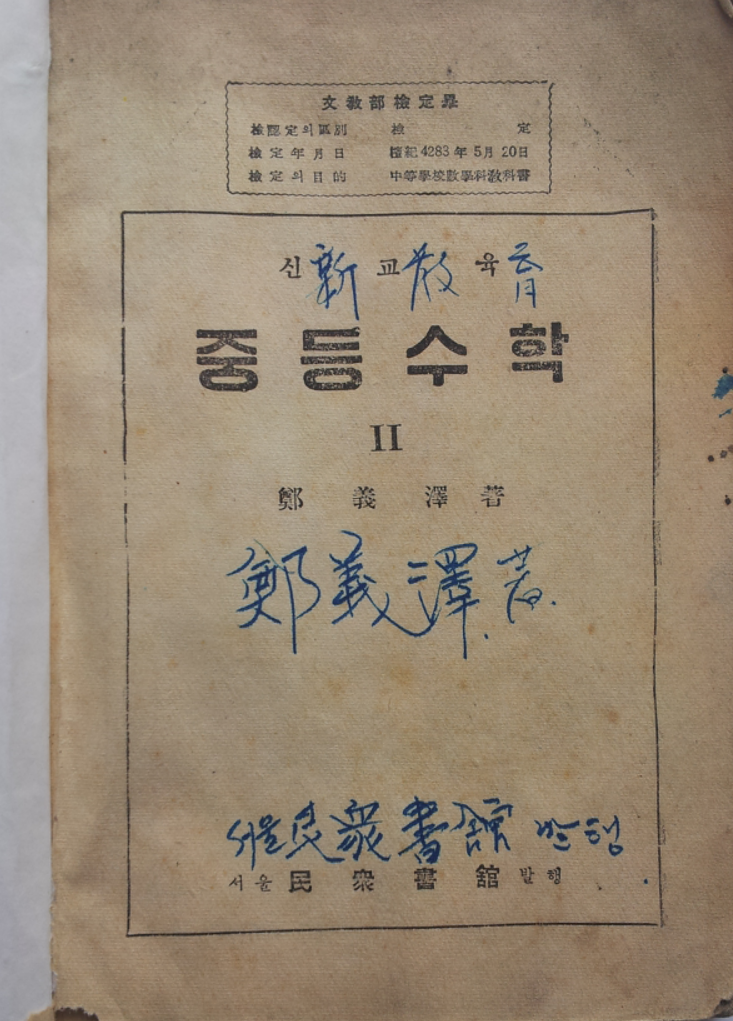 文敎部檢定畢
檢認定의區別 檢 定
檢定年月日 檀紀4283年5月20日
檢定의目的 中等學校數學科敎科書
신新 교敎 육育
중등수학
II
鄭義澤著
鄭義澤著.
서울民衆書舘 발행
서울 民衆書舘 발행